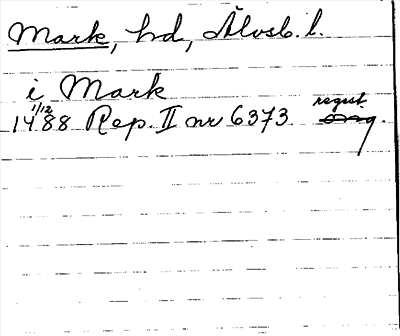 Mark, hd, Älvsb. l.
i Mark
14 1/12 88 Rep. II nr 6373 regest orig.